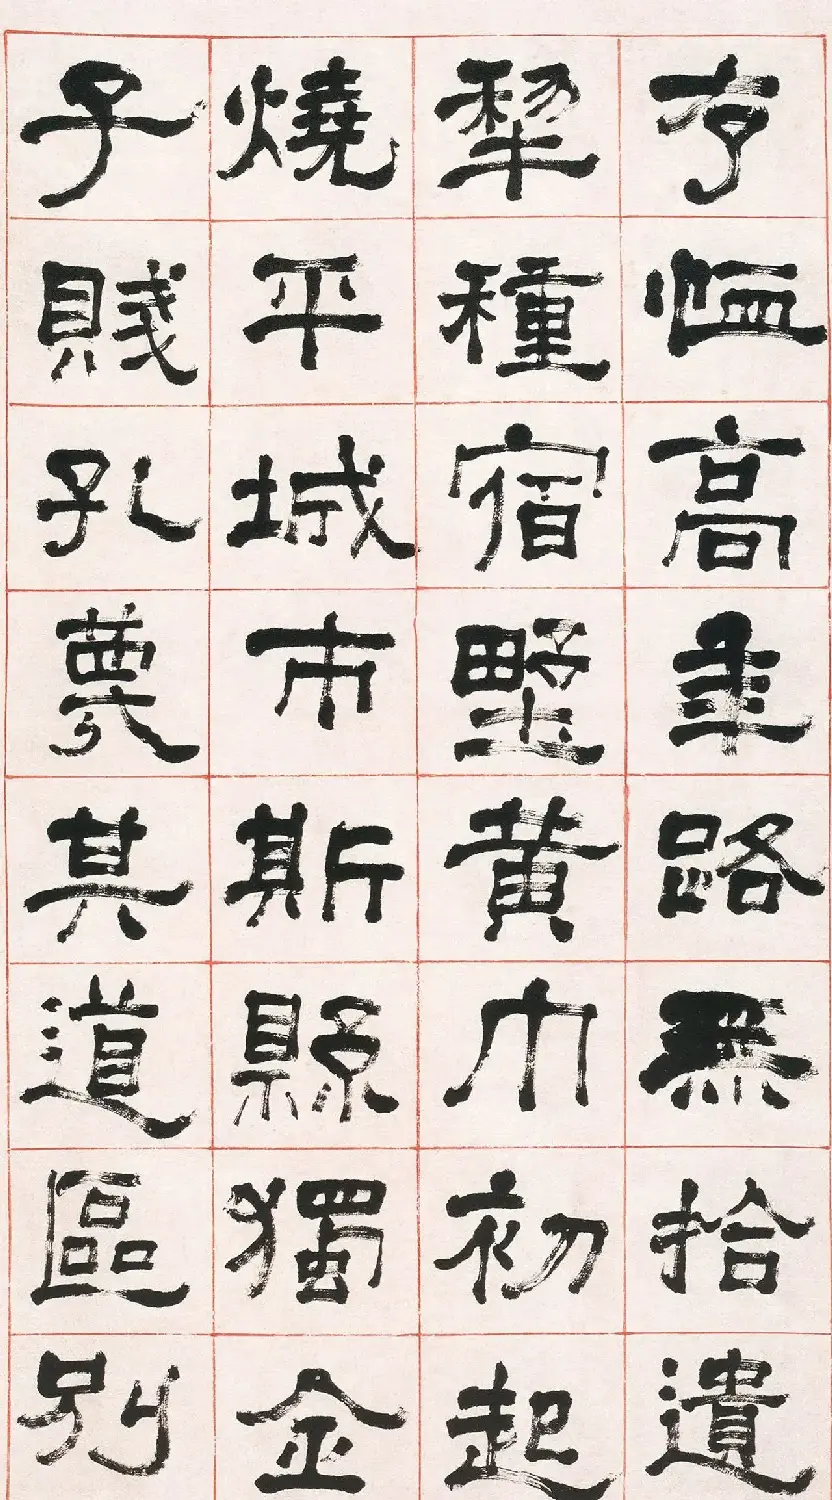 存恤高年路無拾遺
犁種宿墅黃巾初起
燒平城市斯縣獨全
子賤孔蔑其道區別